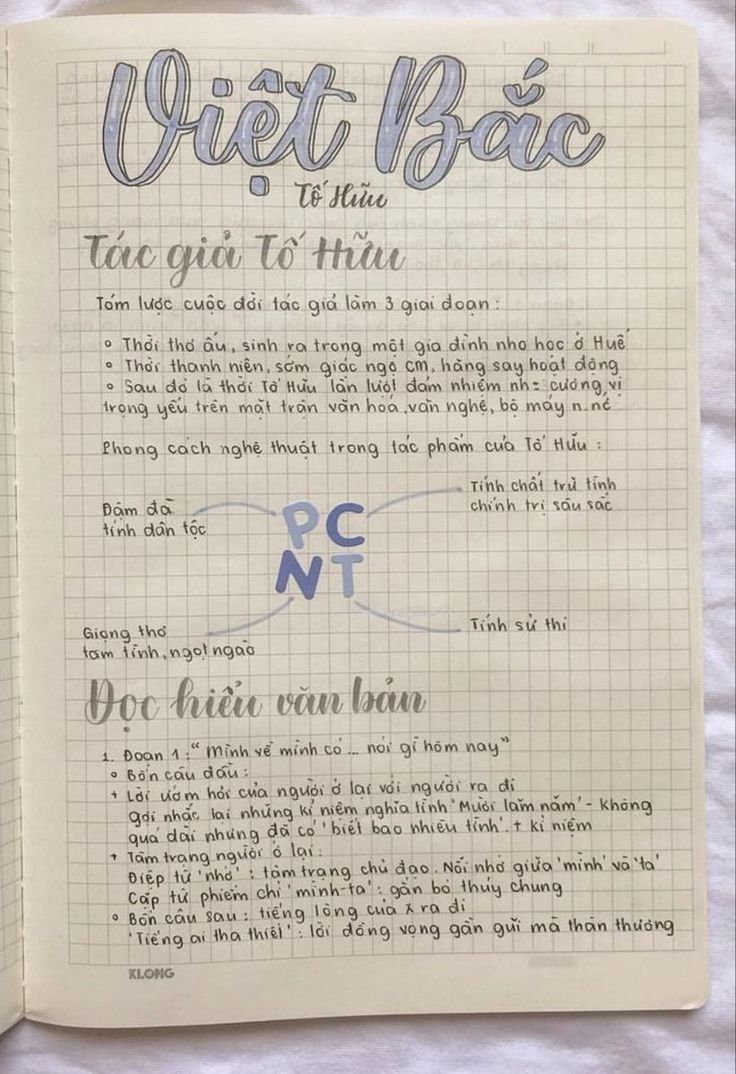 Việt Bắc
Tố Hữu
Tác giả Tố Hữu
Tóm lược cuộc đời tác giả làm 3 giai đoạn:
Thời thơ ấu, sinh ra trong một gia đình nho học ở Huế
Thời thanh niên, sớm giác ngộ cm, hăng say hoạt động
Sau đó là thời Tố Hữu lần lượt đảm nhiệm nh= cương vị
trọng yếu trên mặt trận văn hoá, văn nghệ, bộ máy n.nc
Phong cách nghệ thuật trong tác phẩm của Tố Hữu:
Đậm đà
tính dân tộc
Tính chất trữ tình
chính trị sâu sắc
PC
NT
Giọng thơ
tâm tình, ngọt ngào
Tính sử thi
Đọc hiểu văn bản
1. Đoạn 1: "Mình về mình có ... nói gì hôm nay"
Bốn câu đầu:
+ Lời ướm hỏi của người ở lại với người ra đi
Gợi nhắc lại những kỉ niệm nghĩa tình 'Mười lăm năm' - không
quá dài nhưng đã có 'biết bao nhiêu tình'. + kỉ niệm
+ Tâm trạng người ở lại:
Điệp từ 'nhớ': tâm trạng chủ đạo. Nỗi nhớ giữa 'mình' và 'ta'
Cặp từ phiếm chỉ 'mình-ta': gắn bó thủy chung
Bốn câu sau: tiếng lòng của ra đi
'Tiếng ai tha thiết': lời đồng vọng gần gũi mà thân thương
KLONG